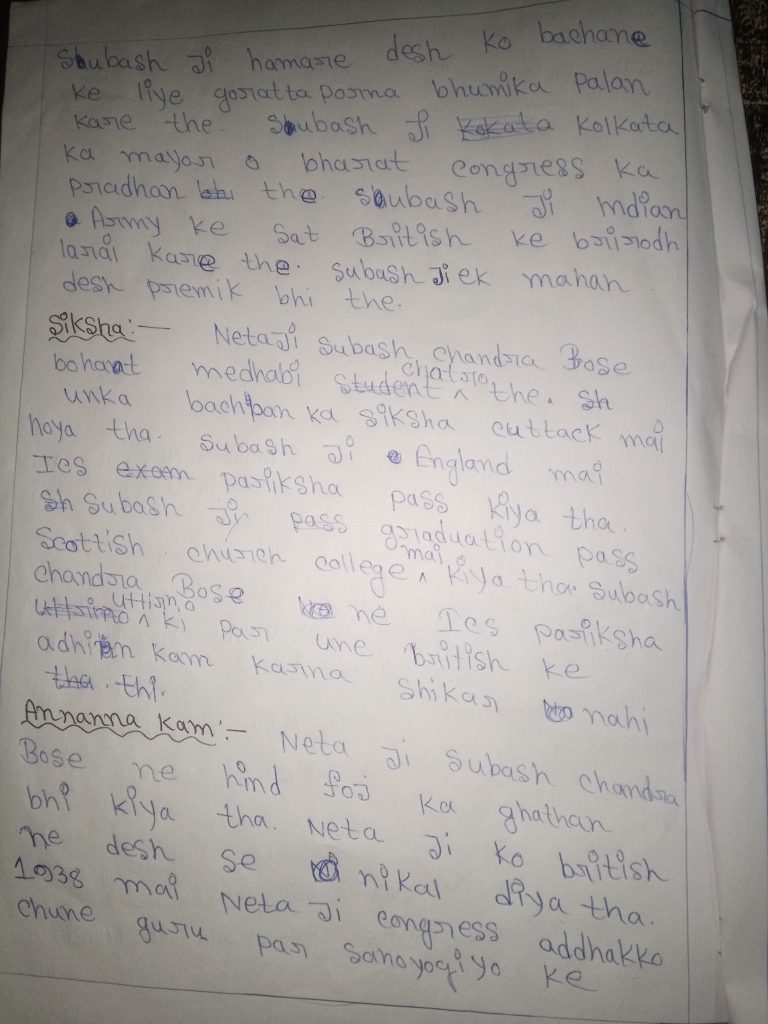 Subash Ji hamare desh ko bachane
ke liye gorattaporna bhumika palan
kare the. Subash Ji Kokata Kolkata
ka mayor o bharat congress ka
pradhan bhi the. Subash Ji indian
Army ke sat British ke brirodh
larai kare the. Subash Ji ek mahan
desh premik bhi the.
Siksha:- NetaJi Subash chandra Bose
bohaat medhabi student chatro the. Sh
unka bachpan ka siksha cuttack mai
hoya tha. Subash Ji England mai
Ics exam pariksha pass kiya tha.
Sh Subash Ji pass graduation pass
Scottish church college mai kiya tha. Subash
chandra Bose ne Ics pariksha
uttirno ki par une british ke
adhin kam karna shikar nahi
tha. thi.
Annanna kam:- Neta Ji Subash chandra
Bose ne hind foj ka ghathan
bhi kiya tha. Neta Ji ko british
ne desh se nikal diya tha.
1938 mai Neta Ji congress addhakko
chune guru par sahoyogiyo ke